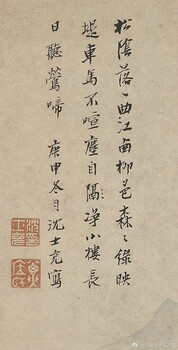 松陰落〻曲江西柳色森〻綠映
堤車馬不喧塵自隔淨小樓長
日聽鶯啼 庚申冬日沈士充寫